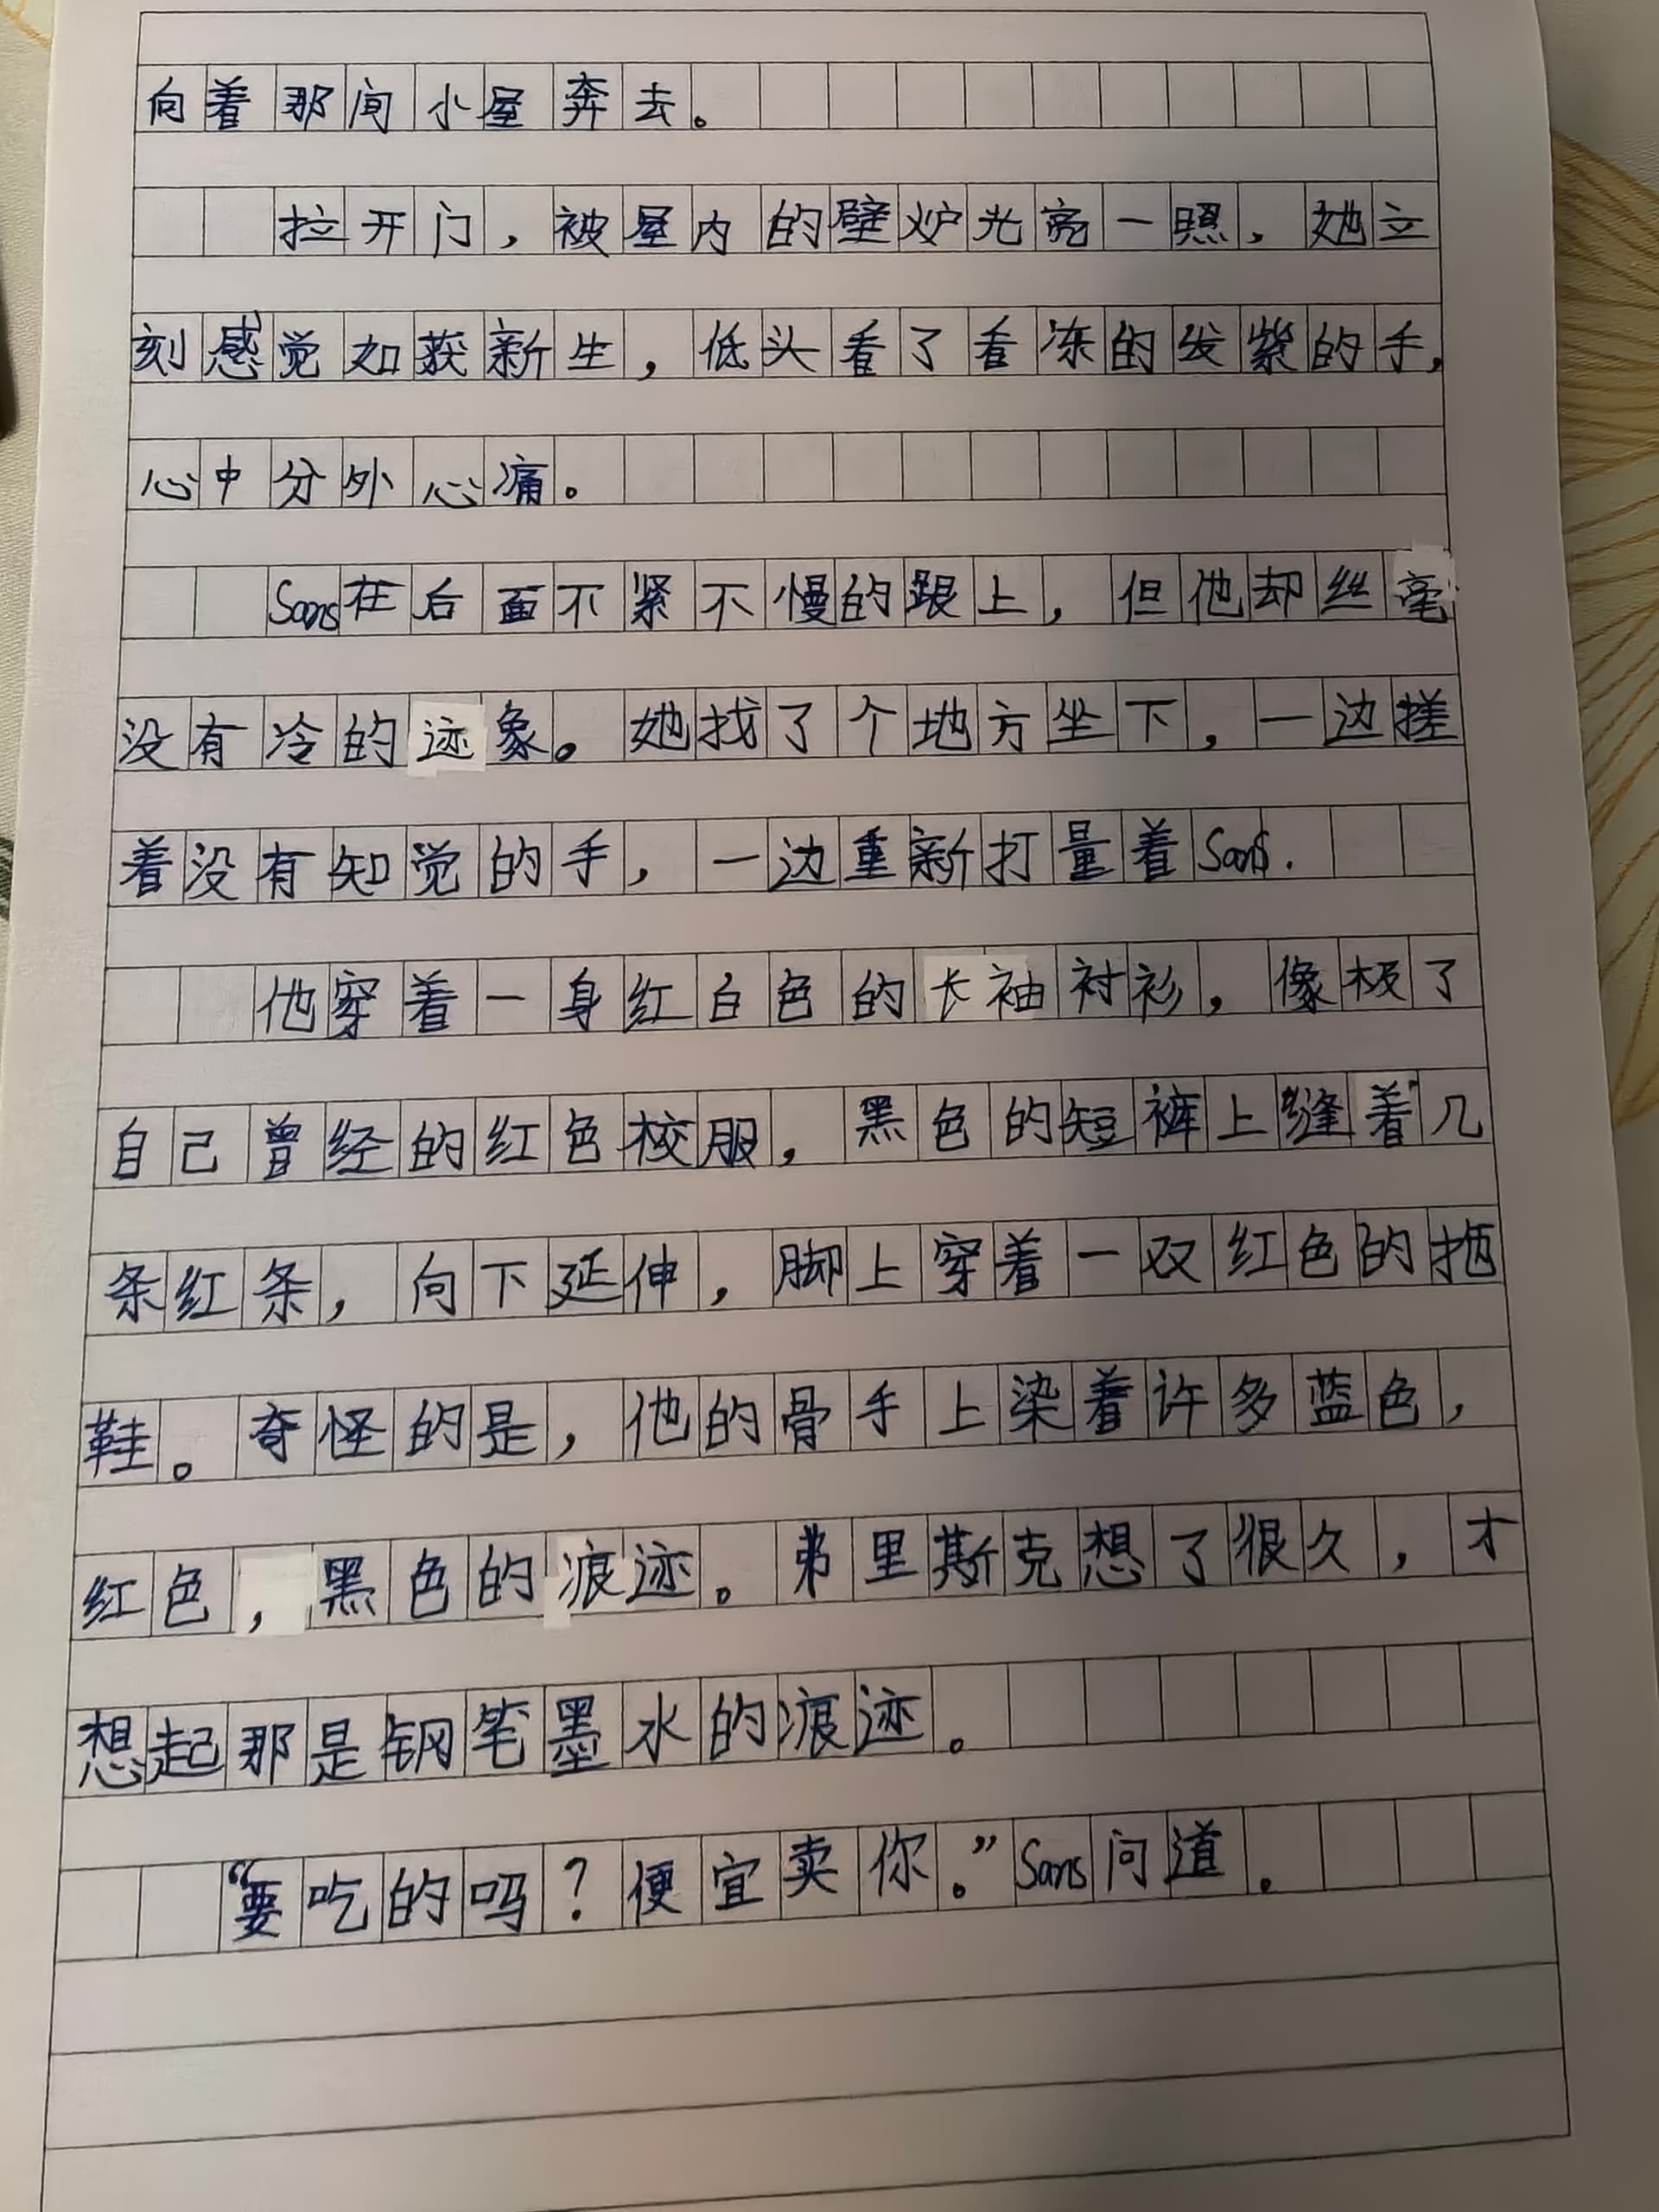 向着那间小屋奔去。
拉开门，被屋内的壁炉光亮一照，她立
刻感觉如获新生，低头看了看冻的发紫的手，
心中分外心痛。
Sans在后面不紧不慢的跟上，但他却丝毫
没有冷的迹象。她找了个地方坐下，一边搓
着没有知觉的手，一边重新打量着Sans.
他穿着一身红白色的长袖衬衫，像极了
自己曾经的红色校服，黑色的短裤上缝着几
条红条，向下延伸，脚上穿着一双红色的拖
鞋。奇怪的是，他的骨手上染着许多蓝色，
红色，黑色的痕迹。弗里斯克想了很久，才
想起那是钢笔墨水的痕迹。
“要吃的吗？便宜卖你。”Sans问道。